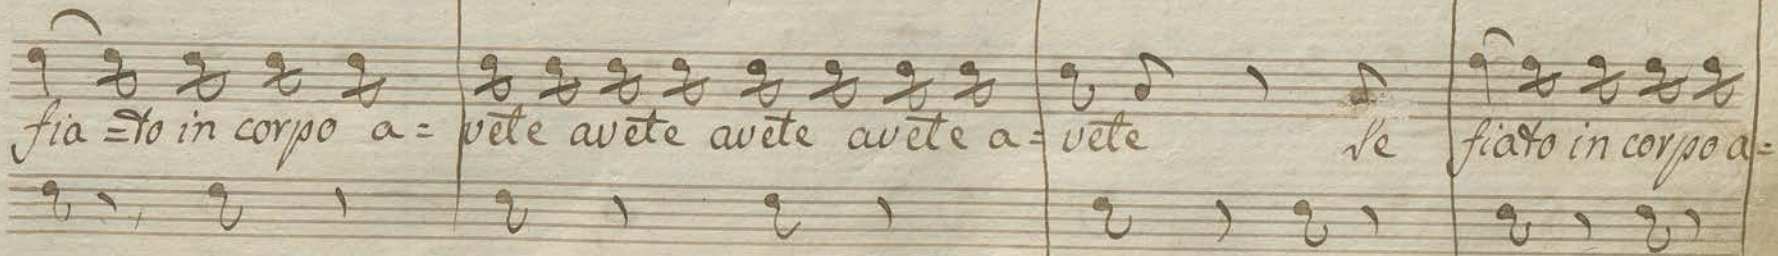 fia=to in corpo a= vete avete avete avete a= vete Se fiato in corpo a=